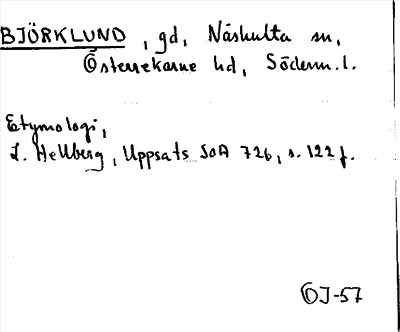 BJÖRKLUND, gd, Näshulta sn,
Österrekarne hd, Söderm. l.
Etymologi,
L. Hellberg, Uppsats SOA 726, s. 122 f.
OJ-57